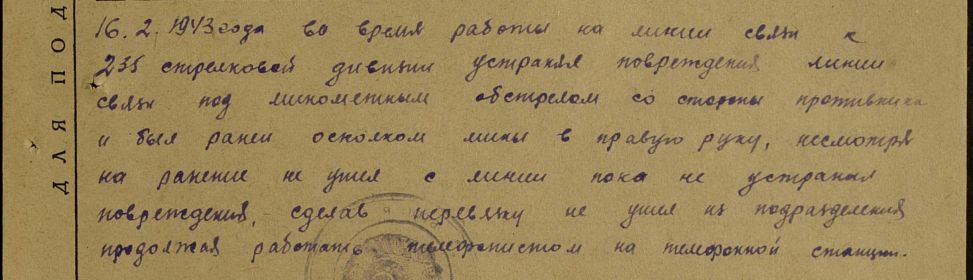 16.2.1943 года во время работы на линии связи к
235 стрелковой дивизии устранял повреждения линии
связи под минометным обстрелом со стороны противника
и был ранен осколком мины в правую руку, несмотря
на ранение не ушел с линии пока не устранил
повреждения, сделав перевязку не ушел из подразделения
продолжая работать телефонистом на телефонной станции.
ДЛЯ ПОД